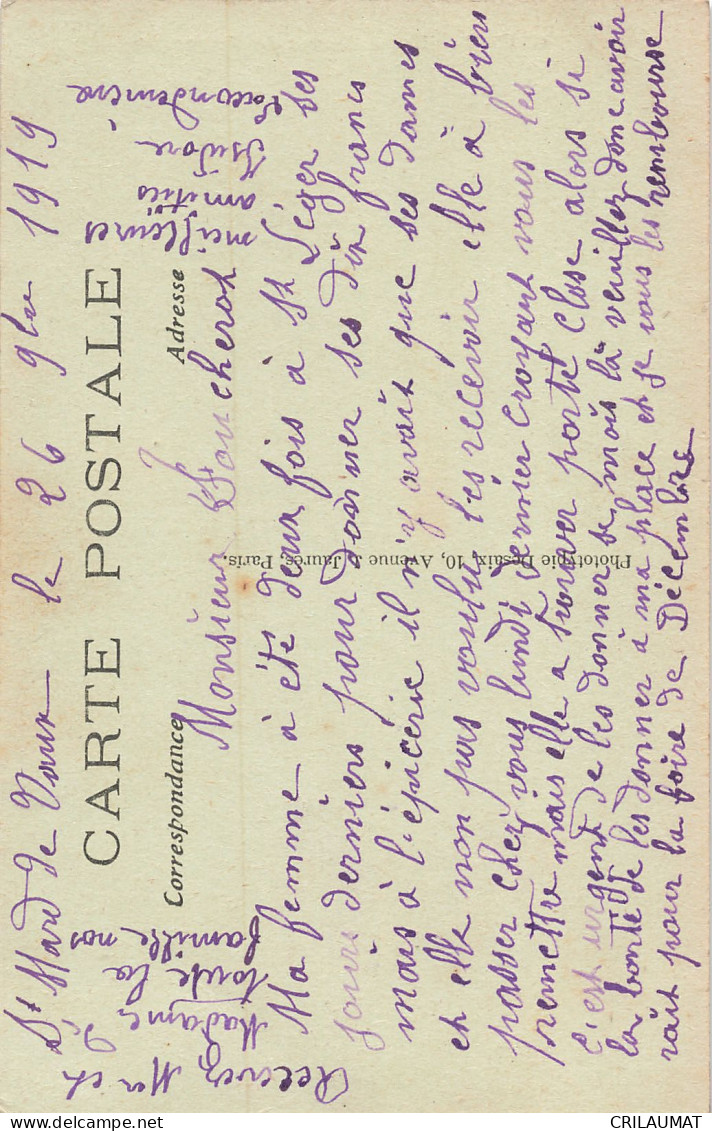 St Mard de Vaux le 26 9bre 1919
CARTE POSTALE
Correspondance
Adresse
Monsieur Foucherot
Ma femme à été deux fois à St Léger ses
jours derniers pour donner ses dix francs
mais à l'épicerie il n'y avait que ses dames
et elle non pas voulu les recevoir elle à bien
passer chez vous lundi dernier croyant vous les
remettre mais elle a trouver porte close alors si
c'est urgent de les donner se mois là veuillez donc avoir
la bonté de les donner à ma place et je vous les rembourse
rait pour la foire de Décembre
Recevez Mr et
Madame
toute la
famille nos
meilleures
amitiés
Isidore
Phototypie Desaix, 10, Avenue J. Jaurès, Paris.
CRILAUMAT